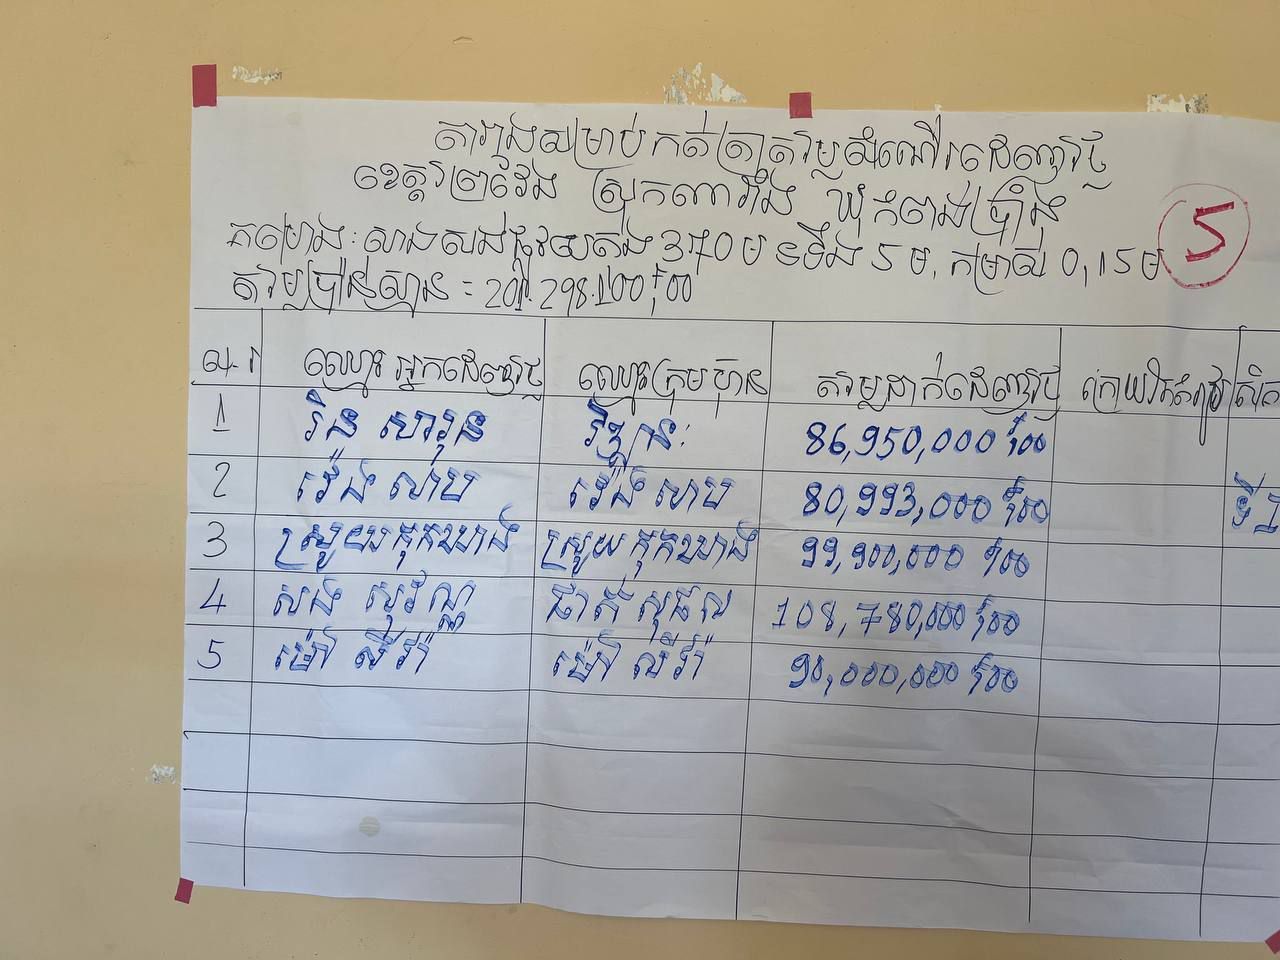 តារាងសម្រាប់កត់ត្រាតម្លៃសំណើរដេញថ្លៃ
ខេត្តព្រៃវែង ស្រុកពារាំង ឃុំកំពង់ប្រាំង
គម្រោង: សាងសង់ផ្លូវបេតុង 370ម ទទឹង 5ម, កម្រាស់ 0,15ម
5
តម្លៃប៉ាន់ស្មាន =
ល.រ ឈ្មោះអ្នកដេញថ្លៃ ឈ្មោះក្រុមហ៊ុន តម្លៃដាក់ដេញថ្លៃ ក្រោយ
1 រិន សារុន 86,950,000 រៀល
2 វ៉េង សាម វ៉េង សាម 80,993,000 រៀល ទី1
3 ស្រួយ កុកឃាង ស្រួយ កុកឃាង 99,900,000 រៀល
4 សង សុវណ្ណ ផាត់ សុផល 108,780,000 រៀល
5 ម៉ៅ សីវ៉ា ម៉ៅ សីវ៉ា 90,000,000 រៀល